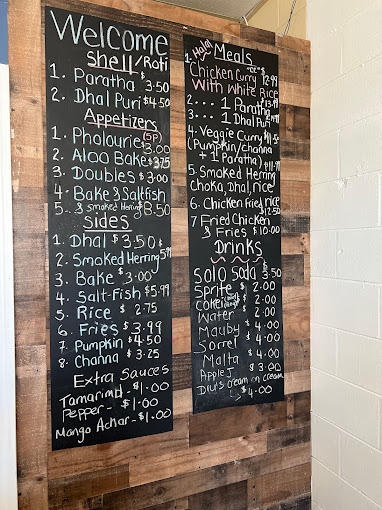 Welcome
Shell/Roti
1. Paratha $3.50
2. Dhal Puri $4.50
Appetizers
1. Pholourie (5P) $3.00
2. Aloo Bake $3.75
3. Doubles $3.00
4. Bake & Saltfish
5. & Smoked Herring 8.50
Sides
1. Dhal $3.50
2. Smoked Herring 5.99
3. Bake $3.00
4. Salt-Fish $5.99
5. Rice $2.75
6. Fries $3.99
7. Pumpkin $4.50
8. Channa $3.25
Extra Sauces
Tamarind - $1.00
Pepper - $1.00
Mango Achar - $1.00
Halal Meals
1. Chicken Curry $12.99
With White Rice
2... 1 Paratha $13.49
3... 1 Dhal Puri
4. Veggie Curry $11.50
(Pumpkin/channa
+ 1 Paratha) $11.99
5. Smoked Herring
Choka, Dhal, rice
6. Chicken Fried rice
$12.50
7 Fried Chicken
& Fries $10.00
Drinks
Solo Soda $3.50
Sprite $2.00
Coke $2.00
Water $2.00
Mauby $4.00
Sorrel $4.00
Malta $4.00
Apple J $3.00
cream
$4.00